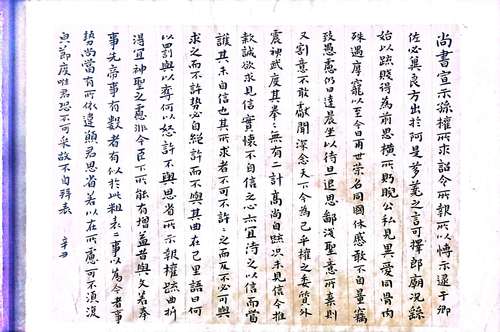 尚書宣示孫權所求詔令所報所以博示逮于卿
佐必冀良方出於阿是芻蕘之言可擇郎廟況繇
始以疏賤得為前恩橫所盼睨公私見異愛同骨肉
殊遇厚寵以至今日再世榮名同國休慼敢不自量竊
致愚慮仍日達晨坐以待旦退思鄙淺聖意所棄則
又割意不敢獻聞深念天下今為已平權之委質外
震神武度其拳々無有二計高尚自疏況未見信今推
款誠欲求見信實懷不自信之心亦宜待之以信而當
護其未自信也其所求者不可不許々之而反不必可與
求之而不許勢必自絕許而不與其曲在己里語曰何
以罰與以奪何以怒許不與思省所示報權疏曲折
得宜神聖之慮非今臣下所能有增益昔與文若奉
事先帝事有數者有似於此粗表二事以為今者事
勢尚當有所依違願君思省若以在所慮可不須復
皃節度唯君恐不可采故不自拜表 辛丑